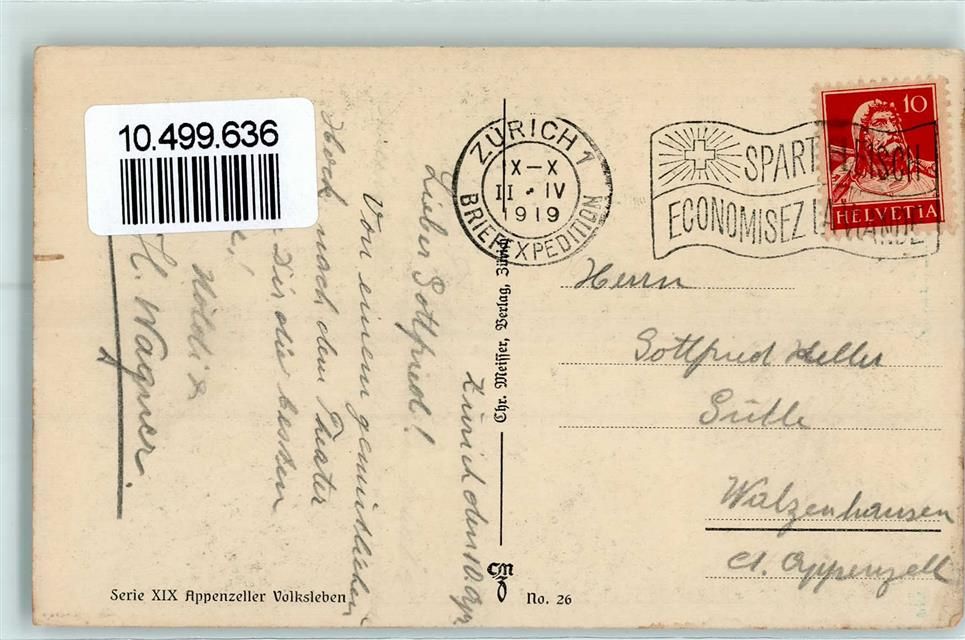 10.499.636
ZÜRICH 1
X–X
II • IV
1919
BRIEFEXPEDITION
SPART
ECONOMISEZ
10
HELVETIA
Zürich den 10. Apr
Lieber Gottfried!
Von einem gemütlichen
Hock nach dem Theater
Dir die besten
H. Wagner.
Chr. Meisser, Verlag, Zürich
Herrn
Gottfried Keller
Walzenhausen
Ct. Appenzell
Serie XIX Appenzeller Volksleben
CM
Z
No. 26